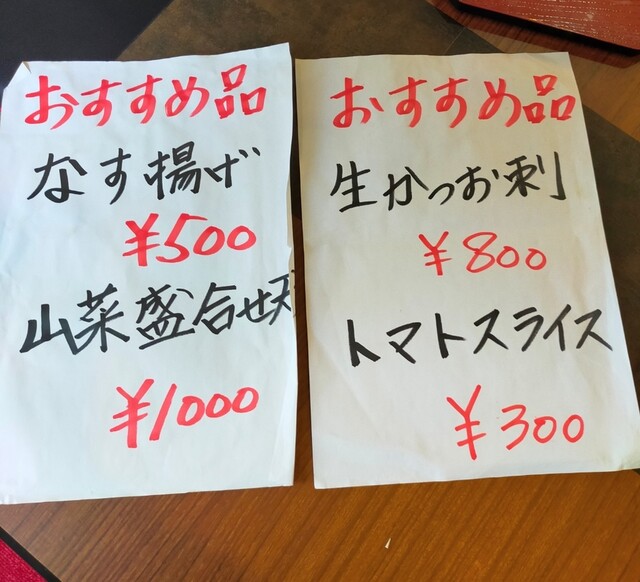 おすすめ品
なす揚げ
¥500
山菜盛合せ天
¥1000
おすすめ品
生かつお刺
¥800
トマトスライス
¥300